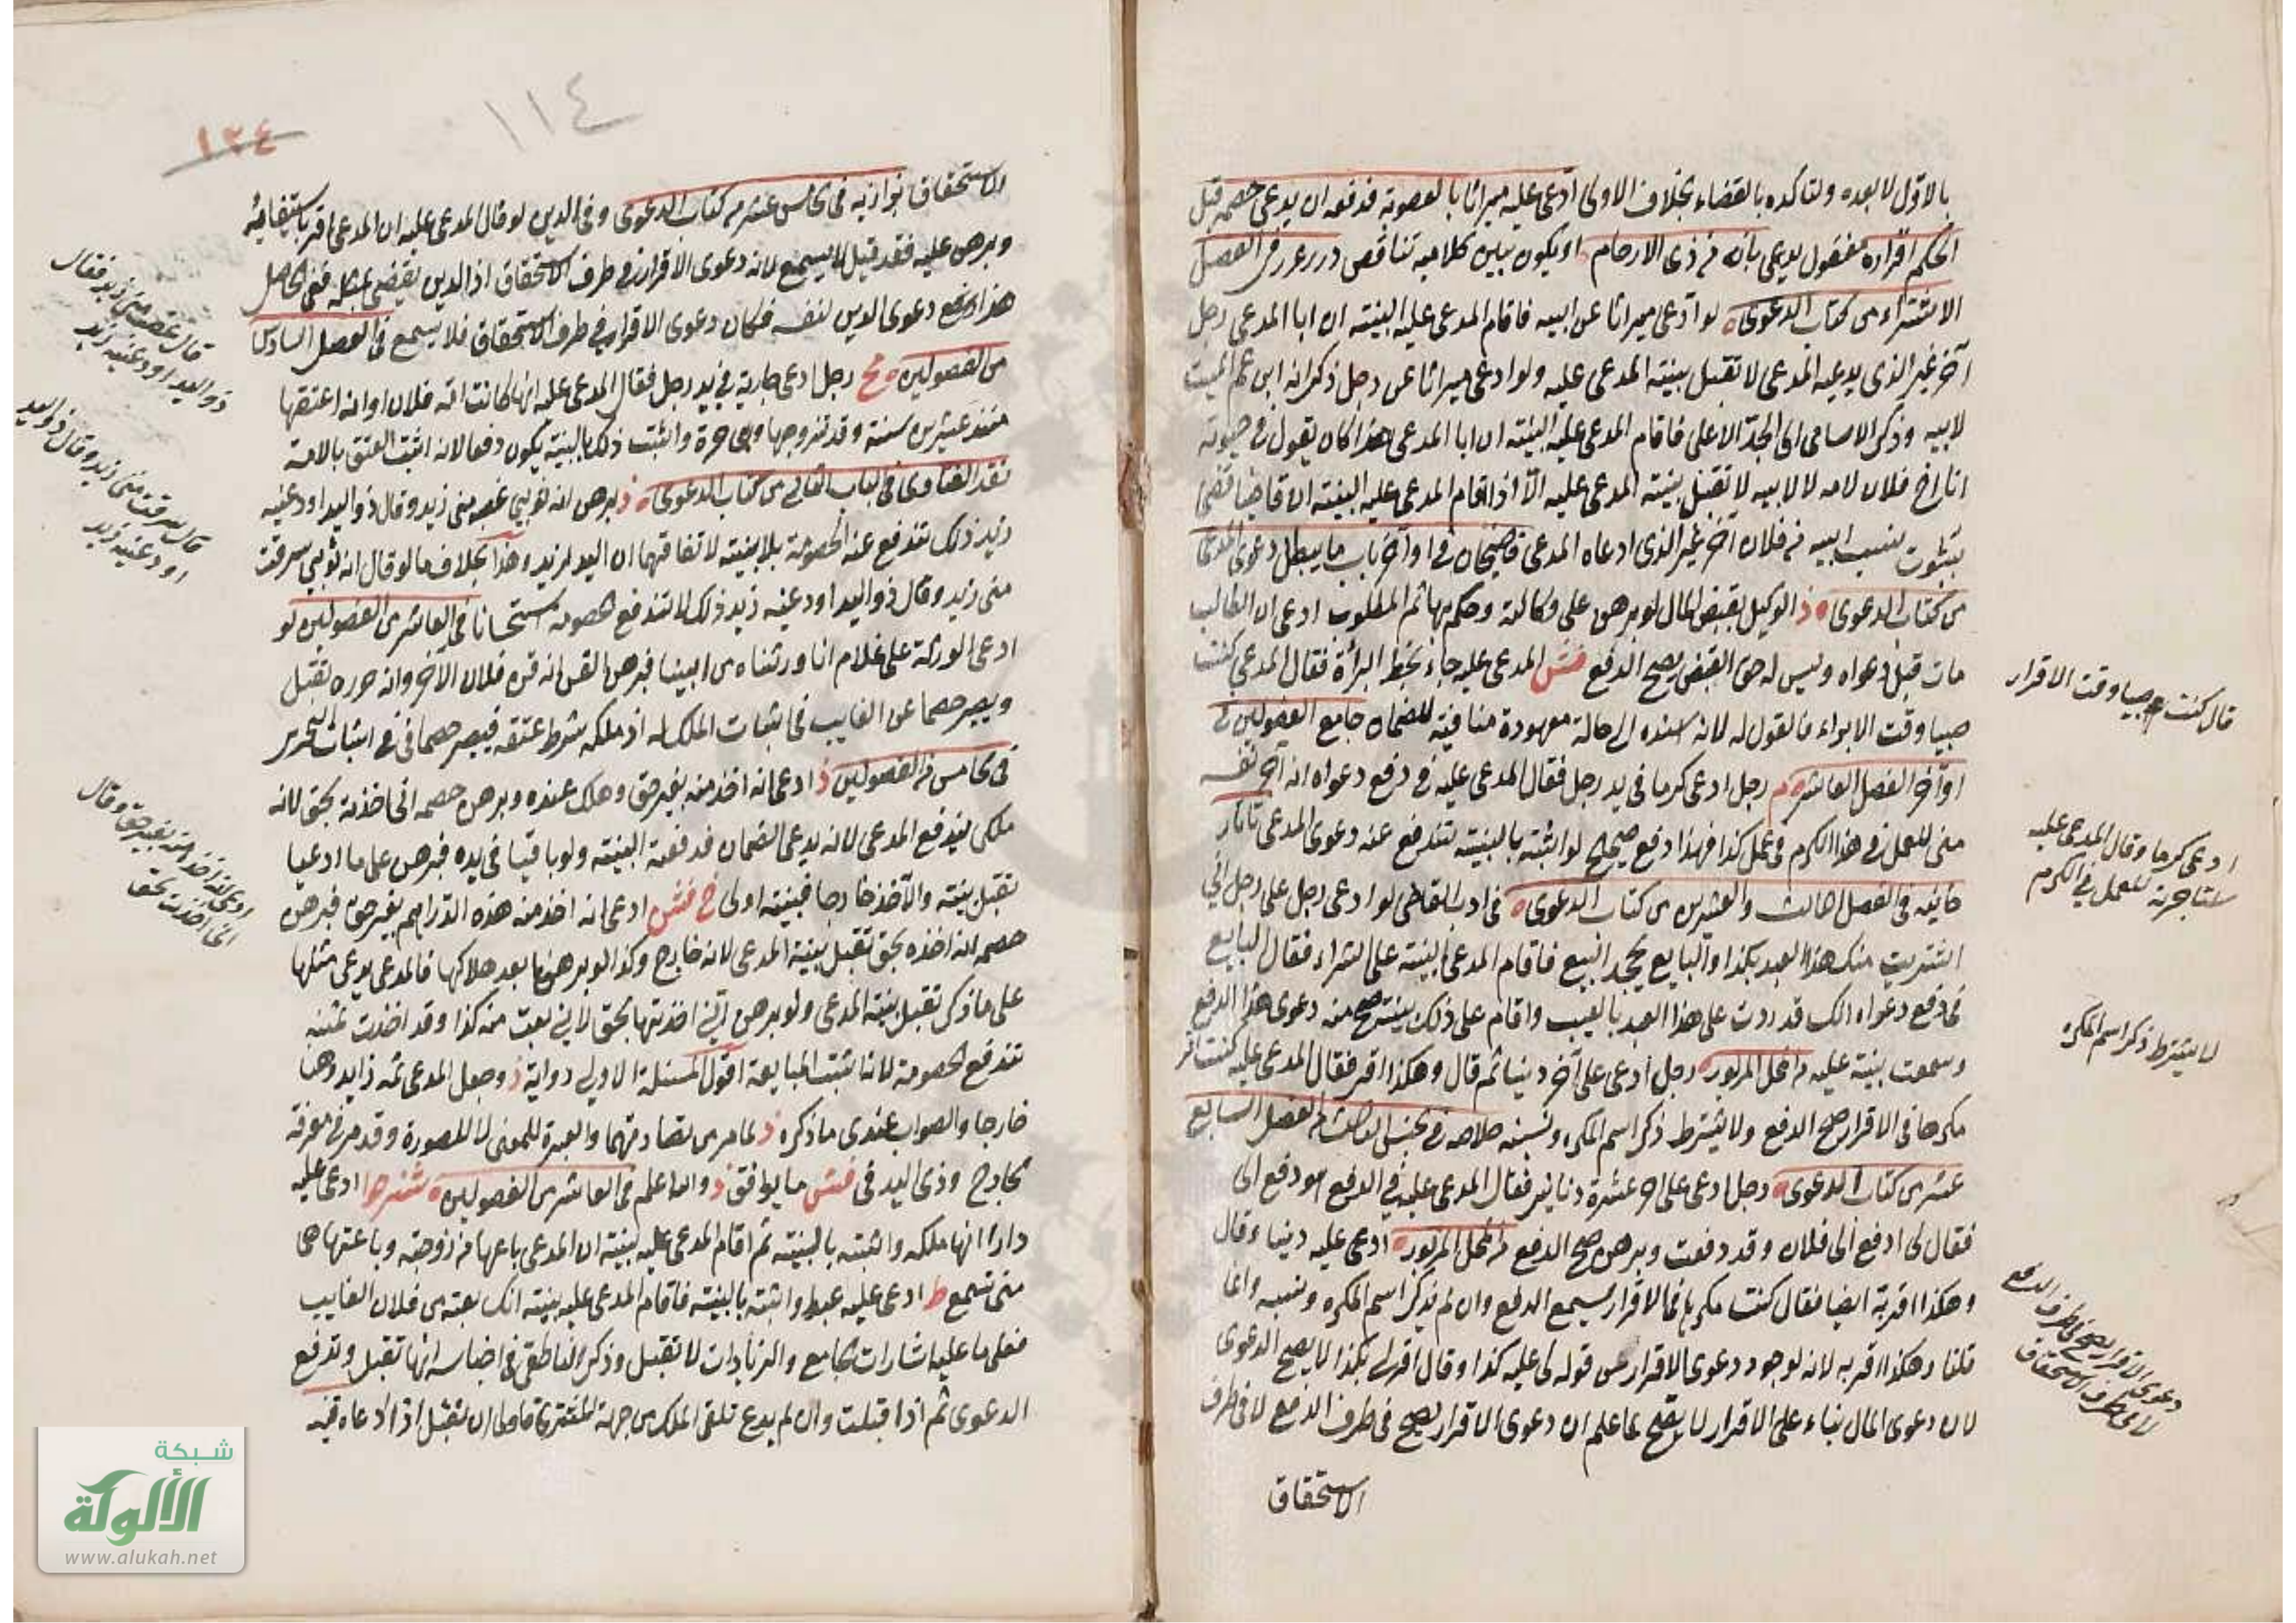 بالاول لا بعده ولتأكده بالقضاء بخلاف الاولى ادعى عليه ميراثا بالعصوبة فدفعه ان يدعى خصمه قبل
الحكم اقراره بانه من ذوى الارحام او يكون بين كلاميه تناقض درر غرر فى الفصل
الاشتراء من كتاب الدعوى لو ادعى ميراثا عن ابيه فاقام المدعى عليه البينة ان ابا المدعى رجل
آخر غير الذى يدعيه المدعى لا تقبل بينة المدعى عليه ولو ادعى ميراثا عن رجل ذكر انه ابن عم الميت
لابيه وذكر الاسامى الى الجد الاعلى فاقام المدعى عليه البينة ان ابا المدعى هذا كان يقول فى حيوته
انا اخ فلان لامه لا لابيه لا تقبل بينة المدعى عليه الا اذا اقام المدعى عليه البينة ان قاضيا قضى
بثبوت نسب ابيه من فلان آخر غير الذى ادعاه المدعى قاضيخان فى اواخر باب ما يبطل دعوى المدعى
من كتاب الدعوى ذ الوكيل بقبض المال لو برهن على وكالته وحكم بها ثم المطلوب ادعى ان الطالب
مات قبل دعواه وليس له حق القبض يصح الدفع فش المدعى عليه جاء بخط البرأة فقال المدعى كنت
صبيا وقت الابراء فالقول له لانه اسنده الى حالة معهودة منافية للضمان جامع الفصولين فى
اواخر الفصل العاشر م رجل ادعى كرما فى يد رجل فقال المدعى عليه فى دفع دعواه انه آجر نفسه
منى للعمل فى هذا الكرم فهذا دفع صحيح لو اثبته بالبينة تندفع عنه دعوى المدعى تاتار
خانيه فى الفصل الثالث والعشرين من كتاب الدعوى فى ادب القاضى لو ادعى رجل على رجل انى
اشتريت منك هذا العبد بكذا والبايع يجحد البيع فاقام المدعى البينة على الشراء فقال البايع
فى دفع دعواه انك قد رددت على هذا العبد بالعيب واقام على ذلك بينة صح منه دعوى هذا الدفع
وسمعت بينته عليه من المحل المزبور رجل ادعى على آخر دينا ثم قال وهكذا اقر فقال المدعى عليه كنت
مكرها فى الاقرار صح الدفع ولا يشترط ذكر اسم المكره ونسبه خلاصه فى الجنس الثالث من الفصل السابع
عشر من كتاب الدعوى رجل ادعى على آخر عشرة دنانير فقال المدعى عليه فى الدفع
فقال لى ادفع الى فلان وقد دفعت وبرهن صح الدفع من المحل المزبور ادعى عليه دينا وقال
وهكذا اقر به ايضا فقال كنت مكرها فى الاقرار يسمع الدفع وان لم يذكر اسم المكره ونسبه وانما
قلنا وهكذا اقر به لانه لو جرد دعوى الاقرار عن قوله لى عليه كذا وقال اقر لى بكذا لا يصح الدعوى
لان دعوى المال بناء على الاقرار لا يصح لما علم ان دعوى الاقرار يصح فى طرف الدفع لا فى طرف
الاستحقاق
قال كنت صبيا وقت الاقرار
ادعى كرما وقال المدعى عليه
استاجرته للعمل فى الكرم
لا يشترط ذكر اسم المكره
دعوى الاقرار يصح فى طرف الدفع
لا فى طرف الاستحقاق
١١٤
١٢٤
الاستحقاق بزازيه فى الخامس عشر من كتاب الدعوى وفى الدين لو قال المدعى عليه ان المدعى اقر باستيفائه
وبرهن عليه فقد قيل لا يسمع لانه دعوى الاقرار فى طرف الاستحقاق اذ الدين يقضى بمثله ففى الحاصل
هذا دعوى الدين لنفسه فكان دعوى الاقرار فى طرف الاستحقاق فلا يسمع فى الفصل السادس
من الفصولين مح رجل ادعى جارية فى يد رجل فقال المدعى عليه انها كانت امة فلان وانه اعتقها
منذ عشرين سنة وقد تزوجها وهى حرة واثبت ذلك بالبينة يكون دفعا لانه اثبت العتق بالامة
نقد الفتاوى فى الباب الثانى من كتاب الدعوى ذ برهن انه ثوبى غصبه منى زيد وقال ذو اليد اودعنيه
زيد ذلك تندفع عنه الخصومة بلا بينة لاتفاقهما ان اليد لزيد وهذا بخلاف ما لو قال انه ثوبى سرقت
منى زيد وقال ذو اليد اودعنيه زيد ذلك لا تندفع الخصومة استحسانا فى العاشر من الفصولين لو
ادعى الورثة على غلام انا ورثناه من ابينا فبرهن القن انه قن فلان الآخر وانه حرره تقبل
ويصير خصما عن الغايب فى اثبات الملك له اذ ملكه شرط عتقه فيصير خصما فى اثبات التحرير
فى الخامس من الفصولين ذ ادعى انه اخذ منه بغير حق وهلك عنده وبرهن خصمه انى اخذته بحق لانه
ملكى يندفع المدعى لانه يدعى الضمان فدفعه البينة ولو باقيا فى يده فبرهن على ما ادعيا
تقبل بينة والآخذ خارجا فبينته اولى خ فش ادعى انه اخذ منه هذه الدراهم بغير حق فبرهن
خصمه انه اخذه بحق تقبل بينة المدعى لانه خارج وكذا لو برهنا بعد هلاكها فالمدعى يدعى مثلها
على ما ذكر تقبل بينة المدعى ولو برهن انى اخذتها بحق لانى بعت منه كذا وقد اخذت ثمنه
تندفع الخصومة لانها تثبت المبايعة اقول المسئلة الاولى رواية ذ وجعل المدعى ثمه ذا يد وهنا
خارجا والصواب عندى ما ذكره ذ لما مر من تصادقهما والعبرة للمعنى لا للصورة وقد مر فى معرفة
الخارج وذى اليد فى فش ما يوافق ذ والله اعلم فى العاشر من الفصولين ادعى عليه
دارا انها ملكه واثبته بالبينة ثم اقام المدعى عليه بينة ان المدعى باعها من زوجته وباعتها هى
منى تسمع ط ادعى عليه عبدا واثبته بالبينة فاقام المدعى عليه بينة انك بعته من فلان الغايب
فعلى ما عليه اشارات الجامع والزيادات لا تقبل وذكر الناطفى فى اجناسه انها تقبل وتدفع
الدعوى ثم اذا قبلت وان لم يدع تلقى الملك من جهة المشترى فاولى ان تقبل اذا ادعاه
قال غصبه منى زيد فقال
ذو اليد اودعنيه زيد
قال سرقت منى زيد وقال ذو اليد
اودعنيه زيد
ادعى انه اخذ منه بغير حق وقال
انى اخذت بحق
شبكة
الألوكة
www.alukah.net